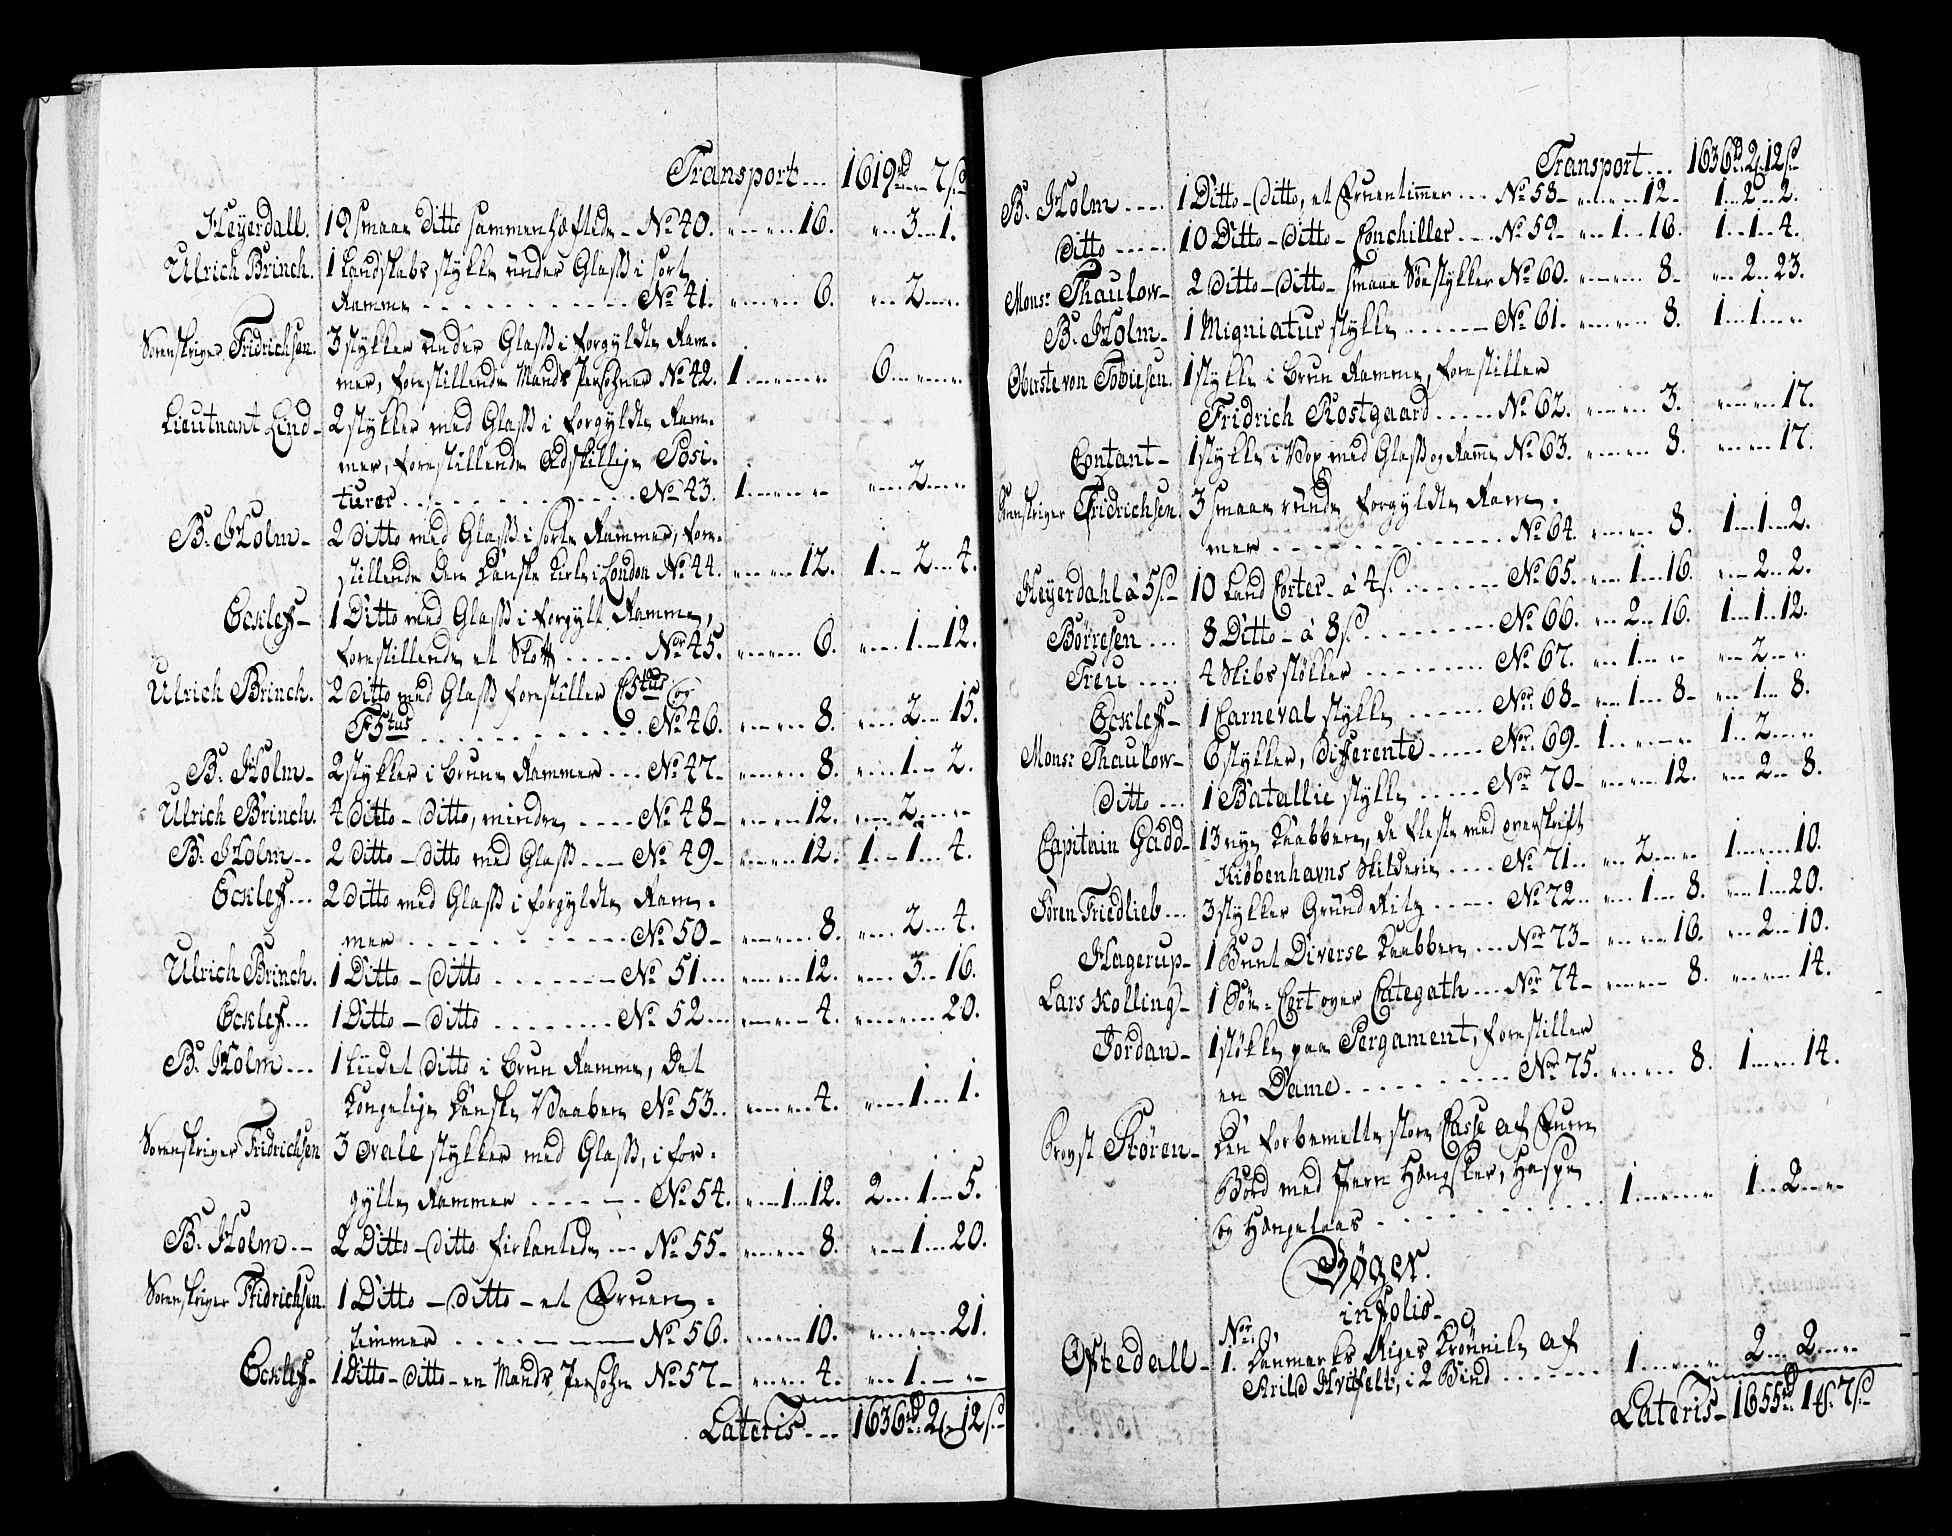 Transport... 1619rd „ 7sk
Heyerdall. 19 smaae ditto sammenhæftede - No 40. „ „ 16. „ 3 „ 1.
Ulrich Brinch. 1 Landskabs stykke under Glass i sort
Ramme . . . No 41. „ „ 6. „ 2 „ „
Sorenskriver Fridrichsen. 3 stykker under Glass i forgyldte Ram-
mer, forestillende Mands Persohner No 42. 1 „ „ 6 „ „
Lieutnant Lind - 2 stykker med Glass i forgyldte Ram-
mer, forestillende Adskillige Posi-
turer . . . No 43. 1 „ „ „ 2 „
B. Holm - 2 ditto med Glass i sorte Rammer, fore-
stillende den danske Kirke i London No 44. „ „ 12. 1 „ 2 „ 4.
Eckleff - 1 Ditto med Glass i forgylt Ramme,
forestillende et Slott . . . Nor 45. „ „ 6. „ 1 „ 12.
Ulrich Brinch. 2 ditto med Glass forestiller C 5tus og
F 5tus . . . No 46. „ „ 8. „ 2 „ 15.
B. Holm - 2 stykker i brune Rammer ... No 47 - „ „ 8. „ 1 „ 2.
Ulrich Brinch. 4 ditto - ditto, mindre .... No 48 - „ „ 12. „ 2 „ „
B. Holm .. 2 ditto - ditto med Glass ... No 49 - „ „ 12. 1 „ 1 „ 4.
Eckleff... 2 ditto med Glass i forgyldte Ram-
mer . . . No 50 - „ „ 8. „ 2 „ 4.
Ulrich Brinch. 1 Ditto - ditto . . . No 51 ... „ „ 12. „ 3 „ 16.
Eckleff... 1 Ditto - ditto . . . No 52 ... „ „ 4. „ „ 20.
B. Holm ... 1 Liidet ditto i brun Ramme, det
Kongelige danske Vaaben No 53.. „ „ 4. „ 1 „ 1.
Sorenskriver Fridrichsen 3 ovale stykker med Glass, i for-
gylte Rammer . . . No 54. „ 1 „ 12. 2 „ 1 „ 5.
B. Holm .. 2 Ditto - ditto firkantede ... No 55 - „ „ 8. „ 1 „ 20.
Sorenskriver Fridrichsen. 1 Ditto - ditto - et Fruen-
timmer . . . No 56. „ „ 10. „ „ 21.
Eckleff - 1 Ditto - ditto - en Mands Persohn No 57 - „ „ 4. „ 1 „ „
Lateris ... 1636rd 2 12sk
Transport ... 1636rd 2 12sk
B. Holm .... 1 Ditto - ditto, et Fruentimmer ... No 58 - „ „ 12. 1 „ 2 „ 2.
ditto ..... 10 Ditto - ditto - Conchiller .... No 59 - „ 1 „ 16. 1 „ 1 „ 4.
Monsr Thaulow - 2 ditto - ditto - smaae Søestykker No 60. „ „ 8. „ 2 „ 23.
B. Holm - 1 Migniatur stykke ..... No 61. „ „ 8. 1 „ 1 „
Oberste von Tobiesen. 1 stykke i brun Ramme, forestiller
Fridrich Rostgaard ..... No 62. „ „ 3. „ „ 17.
Contant - 1 stykke i Vox med Glass og Ramme No 63. „ „ 8. „ „ 17.
Sorenskriver Fridrichsen. 3 smaae runde forgyldte Ram-
mer . . . No 64. „ „ 8. 1 „ 1 „ 2.
Heyerdahl à 5sk 10 Land Corter - à 4s. . . . No 65. „ 1 „ 16. „ 2 „ 2.
Börresen ... 8 Ditto - à 8sk . . . No 66. „ 2 „ 16. 1 „ 1 „ 12.
Treu .... 4 Skibs støkker . . . No 67. „ 1 „ „ „ 2 „ „
Eckleff - 1 Carneval stykke ...... Nor 68 - „ 1 „ 8 - „ 1 „ 8.
Monsr Thaulow - 6 stykker, differente ..... Nor 69. 1 „ „ 1 „ 2 „
ditto ... 1 Batallie stykke ..... Nor 70 - „ „ 12. „ 2 „ 8.
Capitain Gadd - 13 nye Kaabbere, de fleste med overskrift
Kiöbenhavns Skilderie .... No 71.. „ 2 „ „ 1 „ „ 10.
Sören Friedlieb ... 3 stykker Grund Ritz ..... No 72.. „ 1 „ 8. „ 1 „ 20.
Hagerup - 1 Bunt Diverse Kaabbere ... Nor 73 - „ „ 16. „ 2 „ 10.
Lars Kolling - 1 Söe-Cort over Categath ... Nor 74 - „ „ 8. „ „ 14.
Jordan - 1 støkke paa Pergament, forestiller
en Dame . . . Nor 75. „ „ 8. 1 „ „ 14.
Provst Stören - Den forbemelte store Casse af Furre
Bord med Jern Hængsker, Haspe
og Hængelaas . . . 1 „ „ „ 1 „ 2 „ „
Bøger.
in folio -
Nor
Oftedall - 1. Danmarks Riges Krönnike af
Arild Hvitfelt, i 2 Bind ....... 1 „ „ „ 2 „ 2 „ „
Lateris - 1655rd 1 7sk